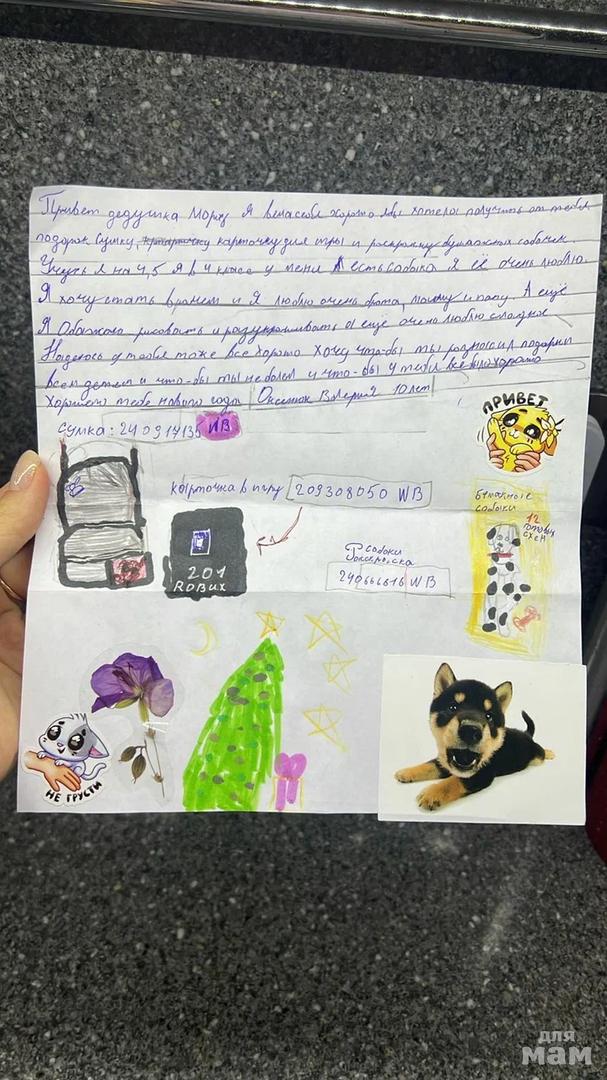 Привет дедушка Мороз Я вела себя хорошо я бы хотела получить от тебя
подарок Сумку, карточку для игры и раскраску бумажных собачек.
Учусь я на 4,5 Я в 4 классе у меня есть собака Я её очень люблю.
Я хочу стать врачем и Я люблю очень брата, маму и папу. А ещё
Я Обажаю рисовать и разукрашивать а ещё очень люблю сладкое
Надеюсь у тебя тоже все хорошо Хочу что-бы ты разносил подарки
всем детям и что-бы ты не болел и что-бы у тебя все было хорошо
Хорошего тебе нового года Валерия 10 лет
ПРИВЕТ
сумка: 240917135 WB
карточка в игру 209308050 WB
бумажные
собачки
12
готовых
схем
201
ROBUX
собаки
240666616 WB
НЕ ГРУСТИ
для
мам